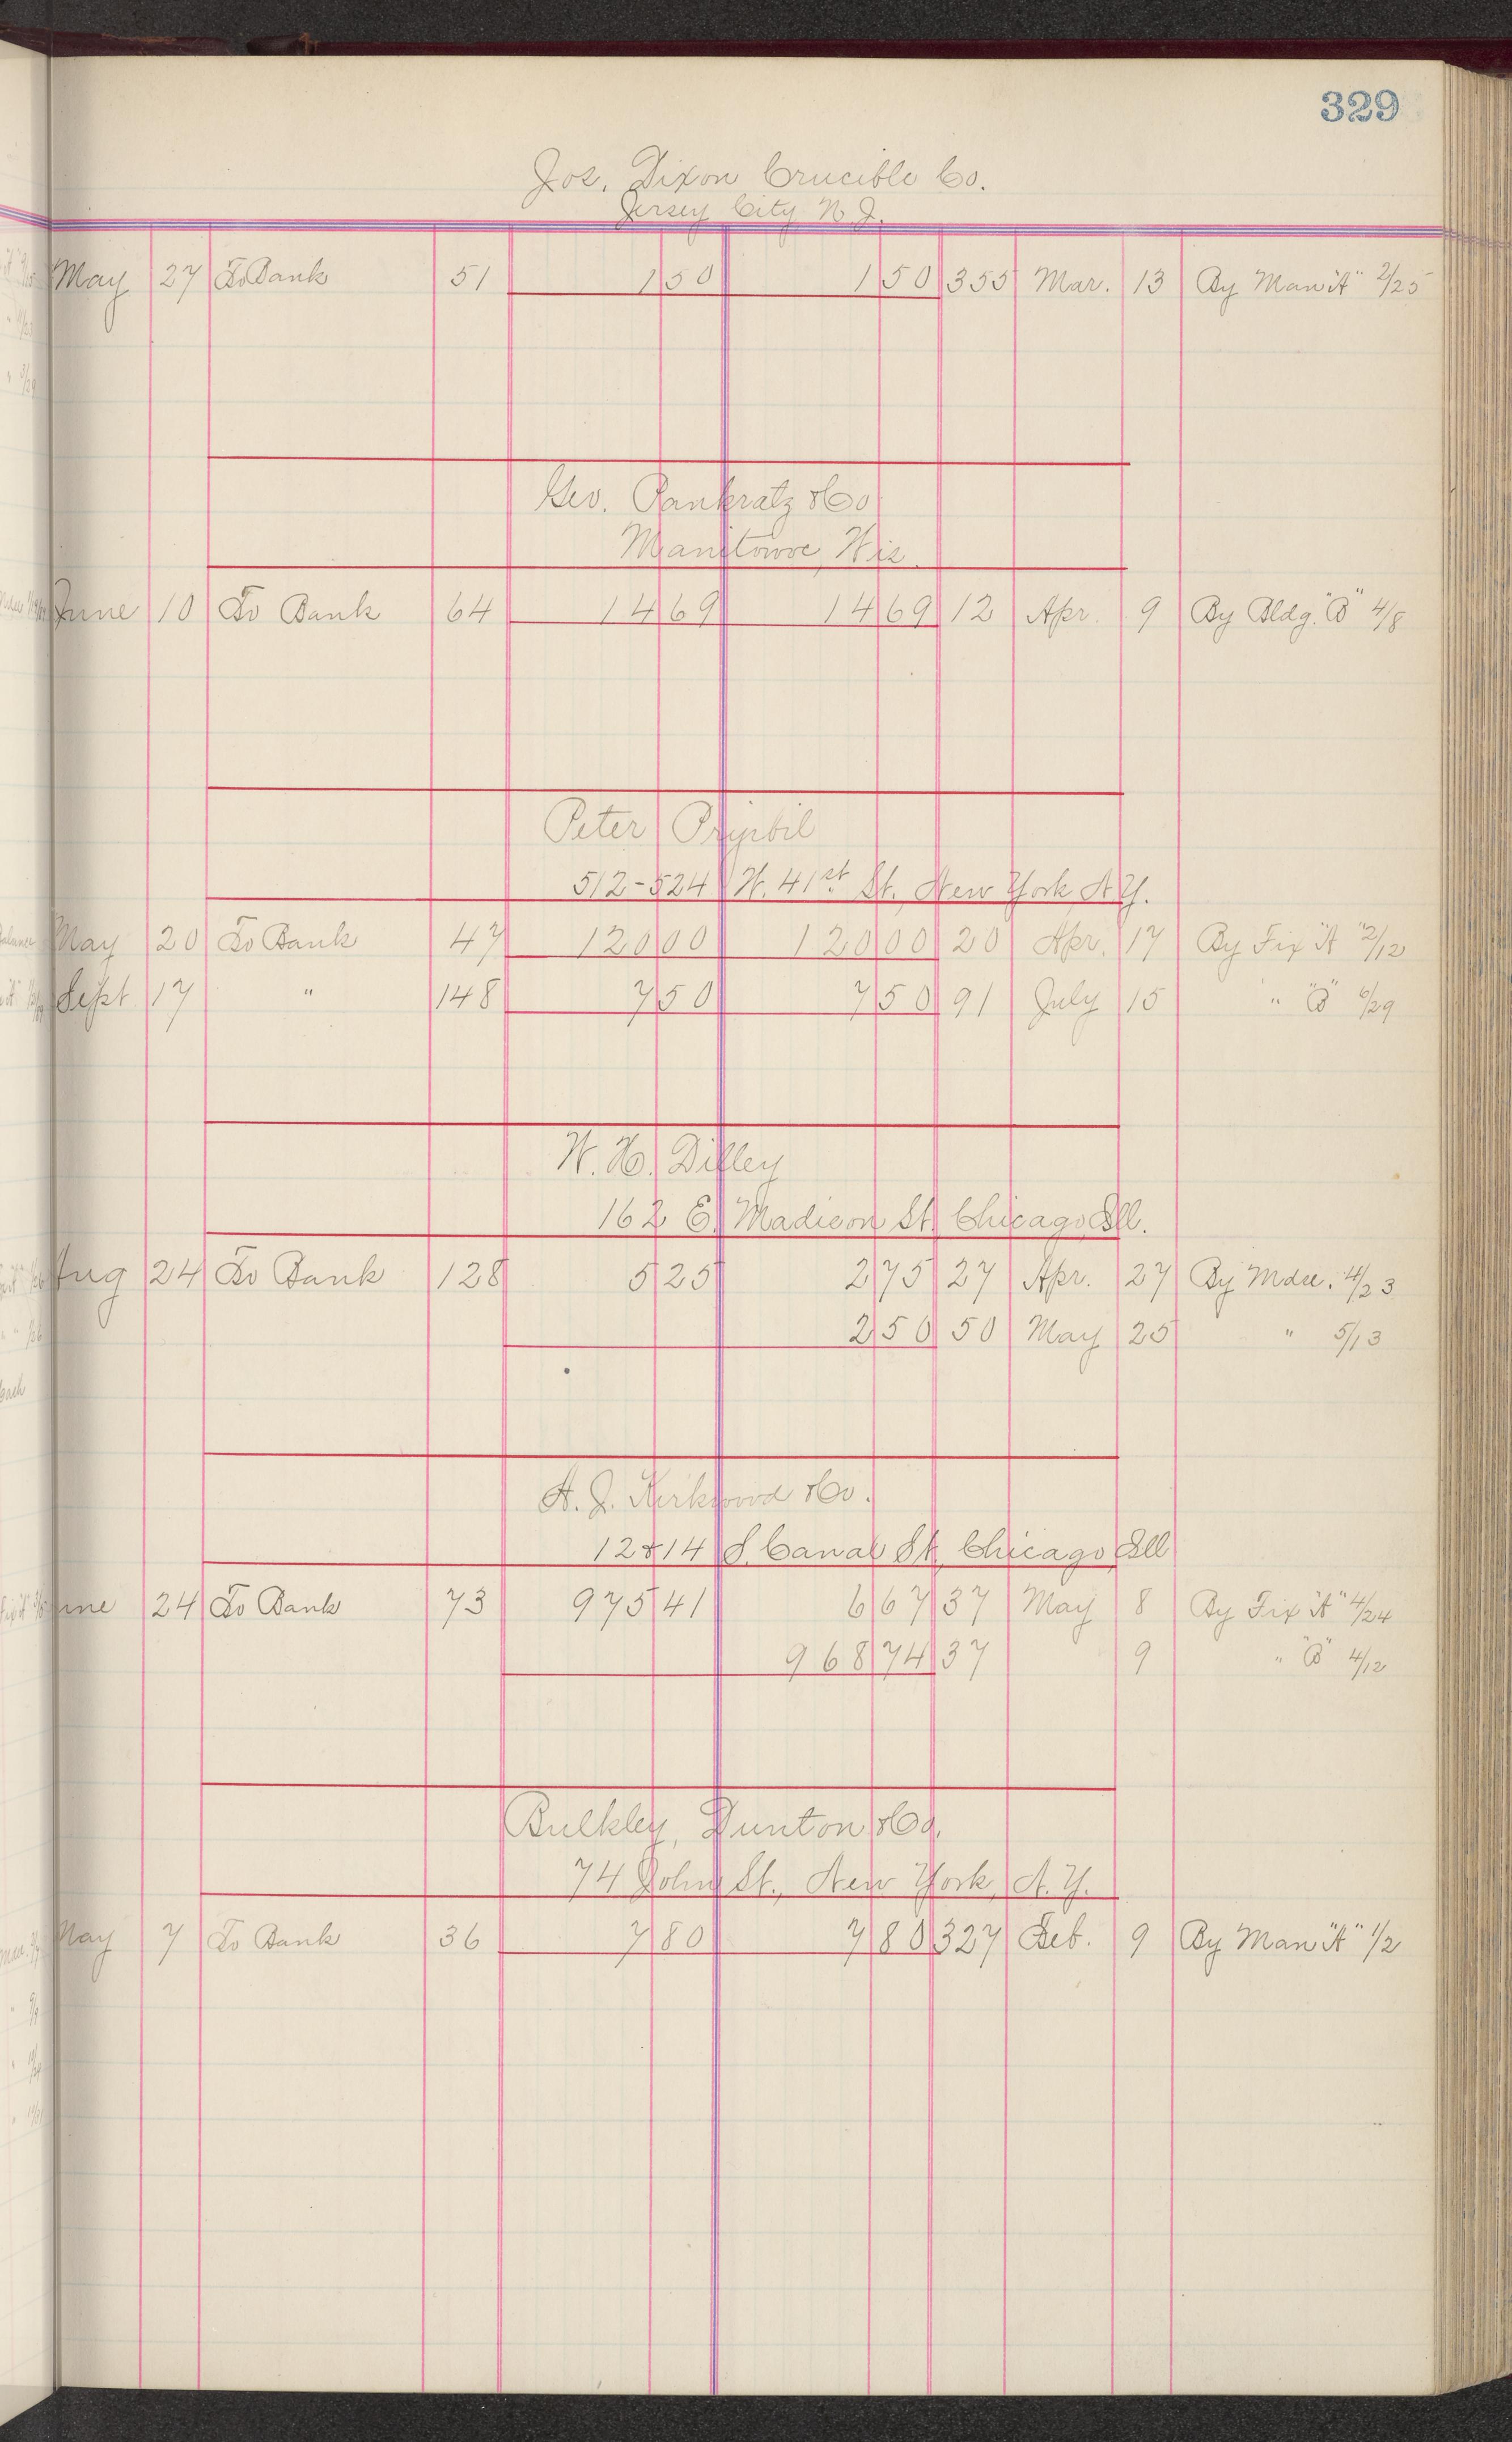 329
Jos. Dixon Crucible Co.
Jersey City N. J.
May 27 To Bank 51 1 50 1 50 355 Mar. 13 By Man "A" 2/25
Geo. Pankratz & Co
Manitowoc, Wis.
June 10 To Bank 64 14 69 14 69 12 Apr. 9 By Bldg. "B" 4/8
Peter Pryibil
512-524 W. 41st St. New York N.Y.
May 20 To Bank 47 120 00 120 00 20 Apr. 17 By Fix "A" 2/12
Sept 17 " 148 7 50 7 50 91 July 15 " "B" 6/29
W. H. Dilley
162 E. Madison St. Chicago, Ill.
Aug 24 To Bank 128 5 25 2 75 27 Apr. 27 By Mdse. 4/23
2 50 50 May 25 " 5/13
A. J. Kirkwood & Co.
12 & 14 S. Canal St. Chicago, Ill
une 24 To Bank 73 975 41 6 67 37 May 8 By Fix "A" 4/24
968 74 37 9 " "B" 4/12
Bulkley, Dunton & Co.
74 John St., New York, N.Y.
May 7 To Bank 36 7 80 7 80 327 Feb. 9 By Man "A" 1/2